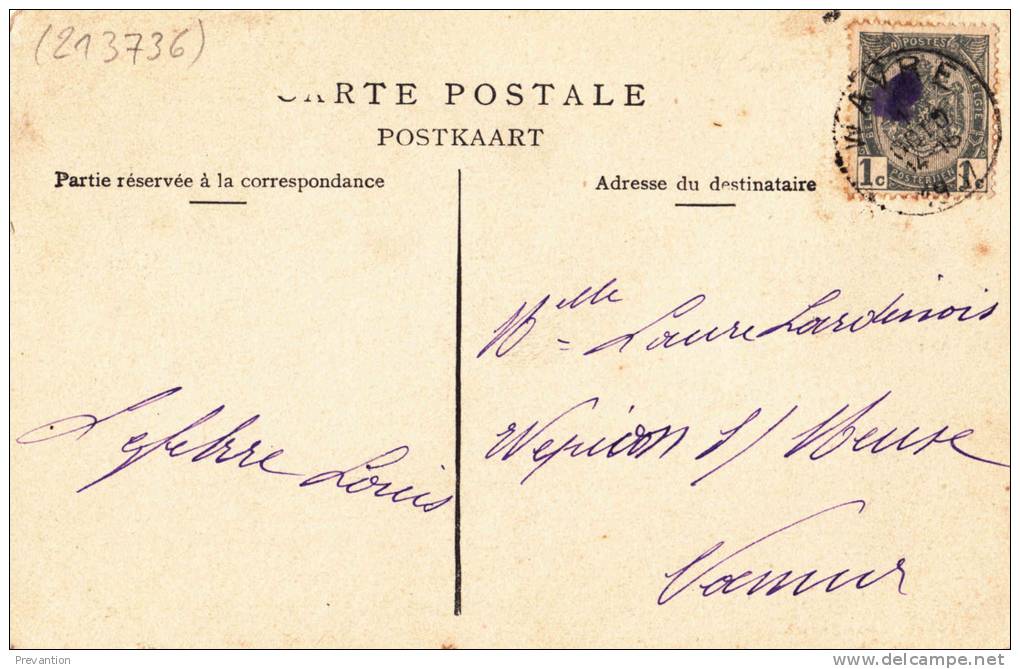 (213736)
CARTE POSTALE
POSTKAART
Partie réservée à la correspondance
Adresse du destinataire
POSTES
BELGIQUE
BELGIË
1c
POSTERIJEN
1c
WAVRE
Melle Laure Lardinois
Wepion s/ Meuse
Namur
Lefebvre Louis
Prevantion
delcampe.net